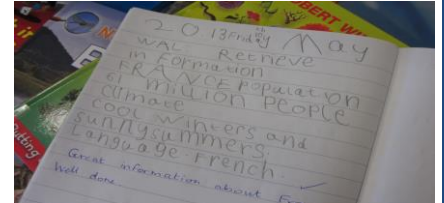 2013 Friday 17th May
WAL Retrieve
information
FRANCE Population
61 million People
climate
cool winters and
sunny summers,
Language: French.
Great information about
Well done
BERT W
it
utting